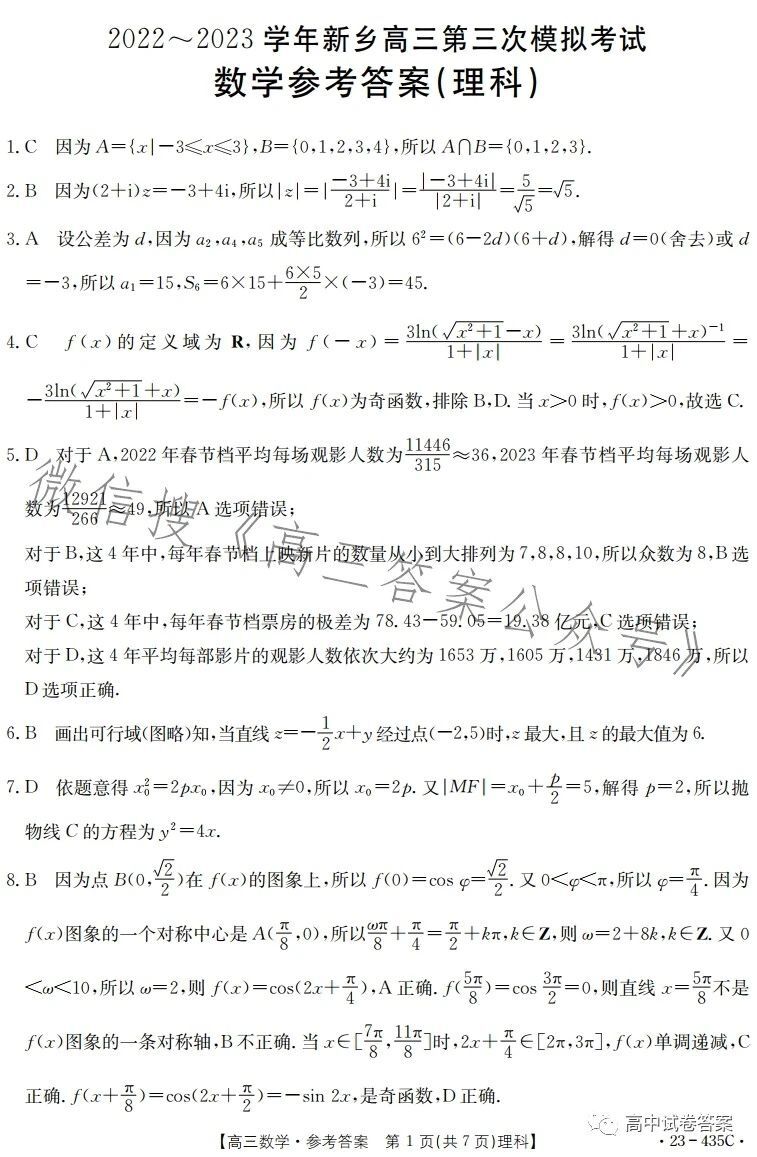 2022～2023 学年新乡高三第三次模拟考试
数学参考答案(理科)
1. C 因为 A={x|-3≤x≤3},B={0,1,2,3,4},所以 A∩B={0,1,2,3}.
2. B 因为(2+i)z=-3+4i,所以|z|=|\frac{-3+4i}{2+i}|=\frac{|-3+4i|}{|2+i|}=\frac{5}{\sqrt{5}}=\sqrt{5}.
3. A 设公差为 d,因为 a₂,a₄,a₅ 成等比数列,所以 6²=(6-2d)(6+d),解得 d=0(舍去)或 d
=-3,所以 a₁=15,S₆=6×15+\frac{6×5}{2}×(-3)=45.
4. C f(x)的定义域为 R,因为 f(-x)=\frac{3ln(\sqrt{x²+1}-x)}{1+|x|}=\frac{3ln(\sqrt{x²+1}+x)^{-1}}{1+|x|}=
-\frac{3ln(\sqrt{x²+1}+x)}{1+|x|}=-f(x),所以 f(x)为奇函数,排除 B,D. 当 x>0 时,f(x)>0,故选 C.
5. D 对于 A,2022 年春节档平均每场观影人数为\frac{11446}{315}≈36,2023 年春节档平均每场观影人
数为\frac{12921}{266}≈49,所以 A 选项错误;
对于 B,这 4 年中,每年春节档上映新片的数量从小到大排列为 7,8,8,10,所以众数为 8,B 选
项错误;
对于 C,这 4 年中,每年春节档票房的极差为 78.43-59.05=19.38 亿元,C 选项错误;
对于 D,这 4 年平均每部影片的观影人数依次大约为 1653 万,1605 万,1431 万,1846 万,所以
D 选项正确.
6. B 画出可行域(图略)知,当直线 z=-\frac{1}{2}x+y 经过点(-2,5)时,z 最大,且 z 的最大值为 6.
7. D 依题意得 x₀²=2px₀,因为 x₀≠0,所以 x₀=2p. 又|MF|=x₀+\frac{p}{2}=5,解得 p=2,所以抛
物线 C 的方程为 y²=4x.
8. B 因为点 B(0,\frac{\sqrt{2}}{2})在 f(x)的图象上,所以 f(0)=cos φ=\frac{\sqrt{2}}{2}. 又 0<φ<π,所以 φ=\frac{π}{4}. 因为
f(x)图象的一个对称中心是 A(\frac{π}{8},0),所以\frac{ωπ}{8}+\frac{π}{4}=\frac{π}{2}+kπ,k∈Z,则 ω=2+8k,k∈Z. 又 0
<ω<10,所以 ω=2,则 f(x)=cos(2x+\frac{π}{4}),A 正确. f(\frac{5π}{8})=cos \frac{3π}{2}=0,则直线 x=\frac{5π}{8}不是
f(x)图象的一条对称轴,B 不正确. 当 x∈[\frac{7π}{8},\frac{11π}{8}]时,2x+\frac{π}{4}∈[2π,3π],f(x)单调递减,C
正确. f(x+\frac{π}{8})=cos(2x+\frac{π}{2})=-sin 2x,是奇函数,D 正确.
微信搜《高三答案公众号》
高中试卷答案
【高三数学·参考答案 第 1 页(共 7 页)理科】
·23-435C·